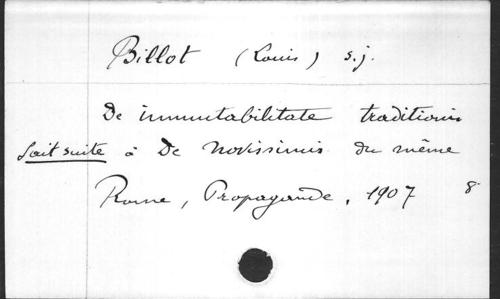 Billot (Louis) s.j.
De immutabilitate traditionis
fait suite à De Novissimis du même
Rome, Propagande, 1907 8°